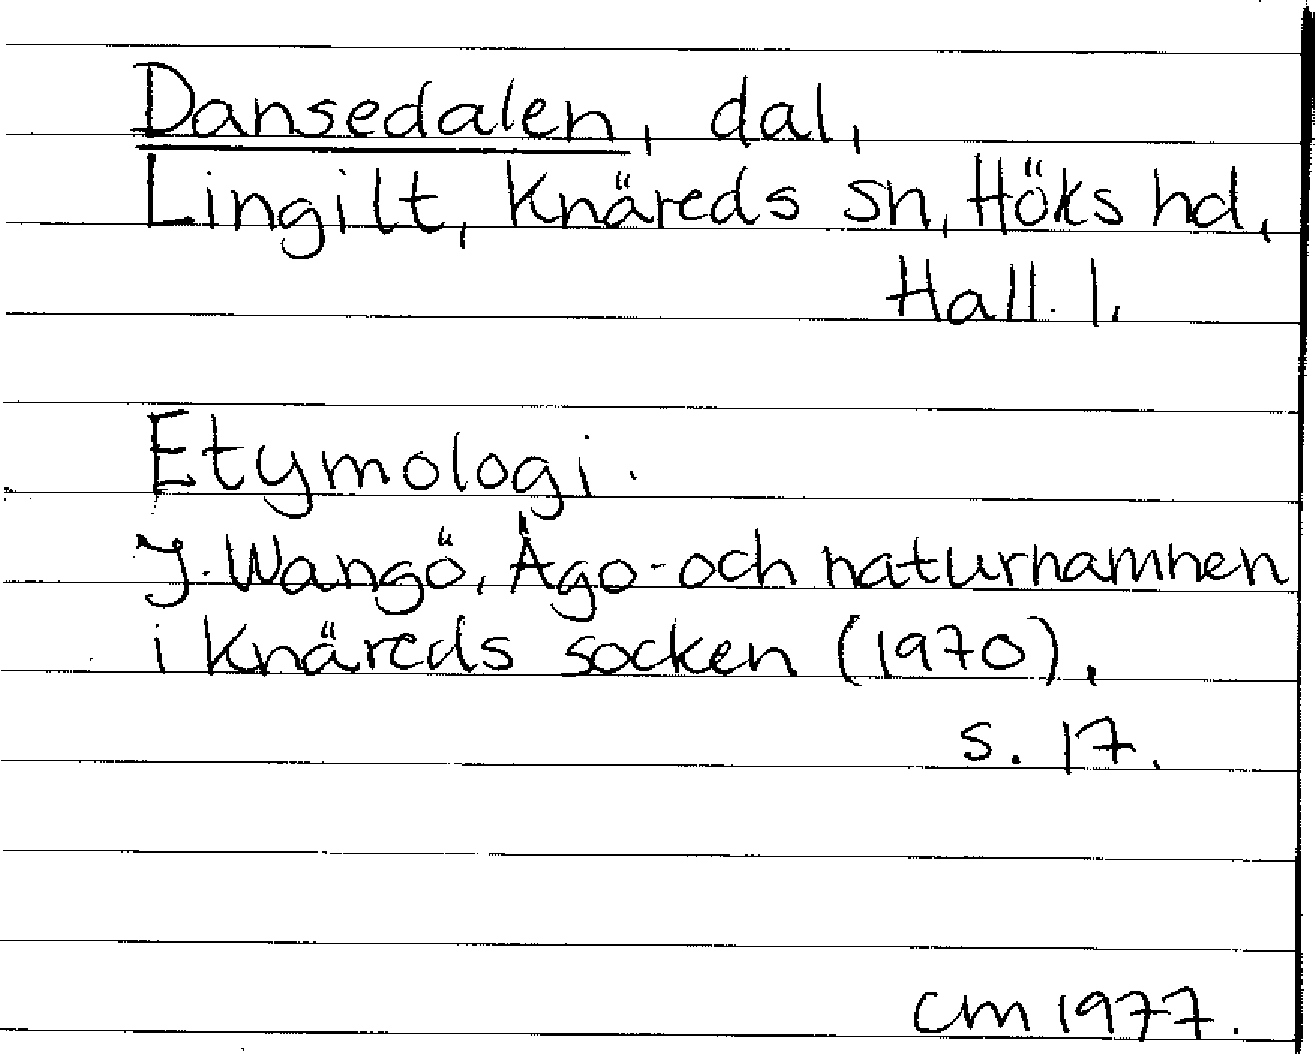 Dansedalen, dal,
Lingilt, Knäreds sn, Höks hd,
Hall. l.
Etymologi.
J. Wangö, Ägo- och naturnamnen
i Knäreds socken (1970),
s. 17.
CM 1977.